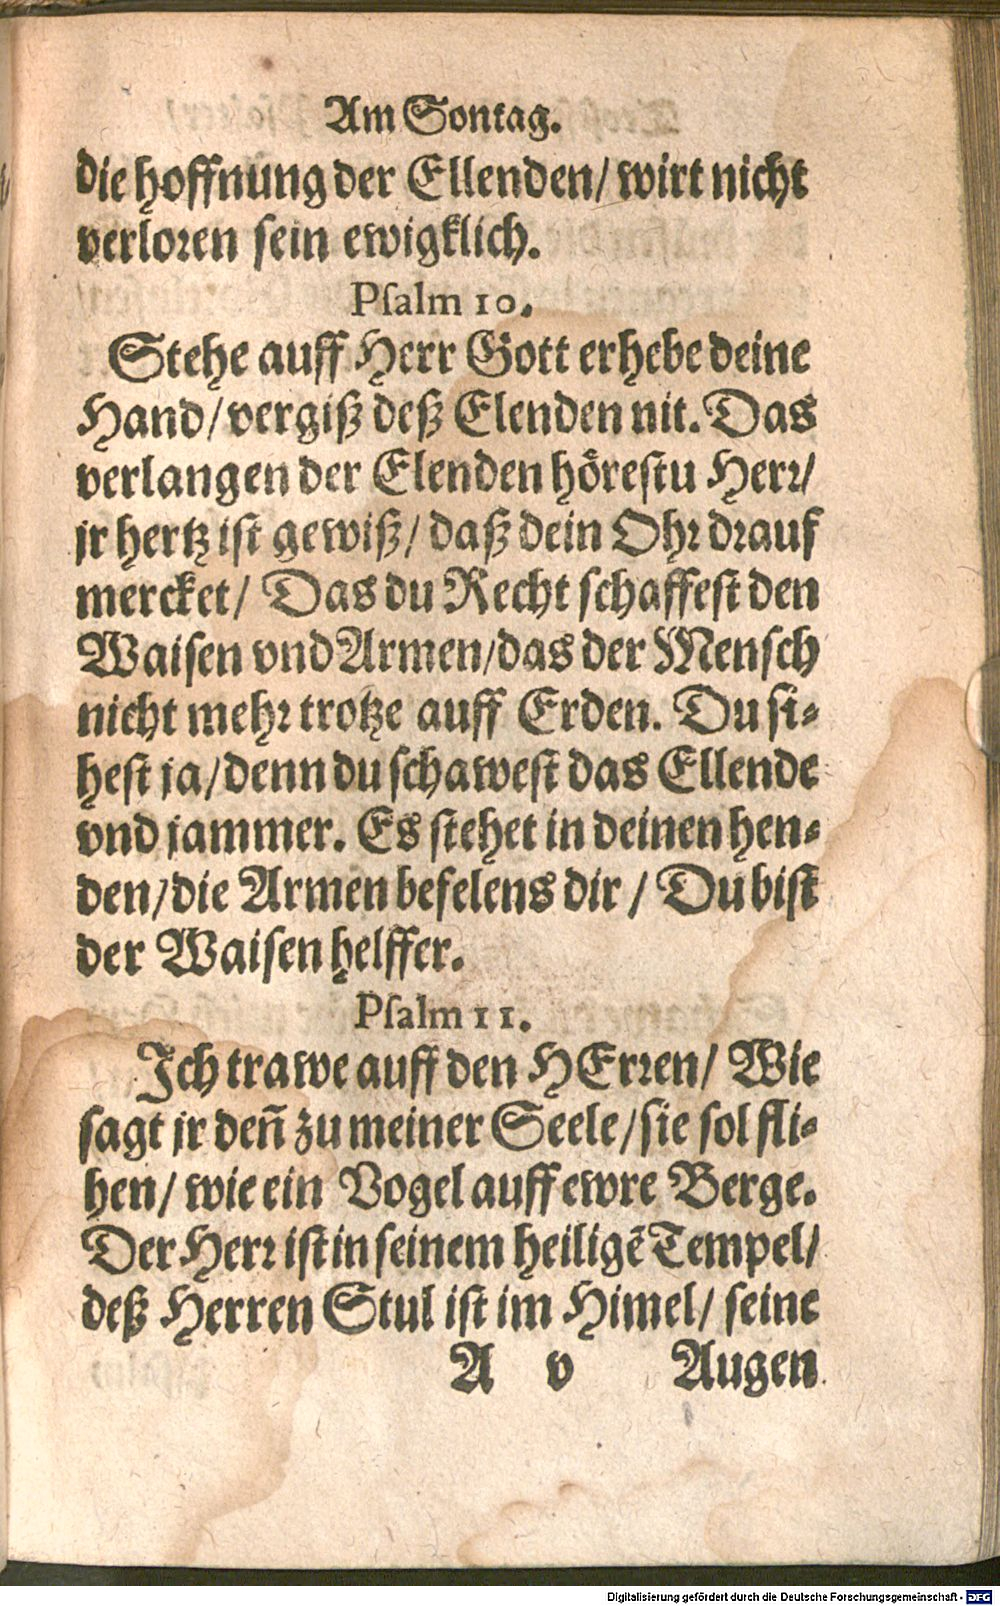 Am Sontag.
die hoffnung der Ellenden/ wirt nicht
verloren sein ewigklich.
Psalm 10.
Stehe auff Herr Gott erhebe deine
Hand/ vergiß deß Elenden nit. Das
verlangen der Elenden hörestu Herr/
jr hertz ist gewiß/ daß dein Ohr drauf
mercket/ Das du Recht schaffest den
Waisen vnd Armen/das der Mensch
nicht mehr trotze auff Erden. Du si-
hest ja/denn du schawest das Ellende
vnd jammer. Es stehet in deinen hen-
den/die Armen befelens dir / Du bist
der Waisen helffer.
Psalm 11.
Ich trawe auff den HErren/ Wie
sagt jr deñ zu meiner Seele/sie sol fli-
hen/ wie ein Vogel auff ewre Berge.
Der Herr ist in seinem heiligẽ Tempel/
deß Herren Stul ist im Himel/ seine
A v Augen
Digitalisierung gefördert durch die Deutsche Forschungsgemeinschaft - DFG